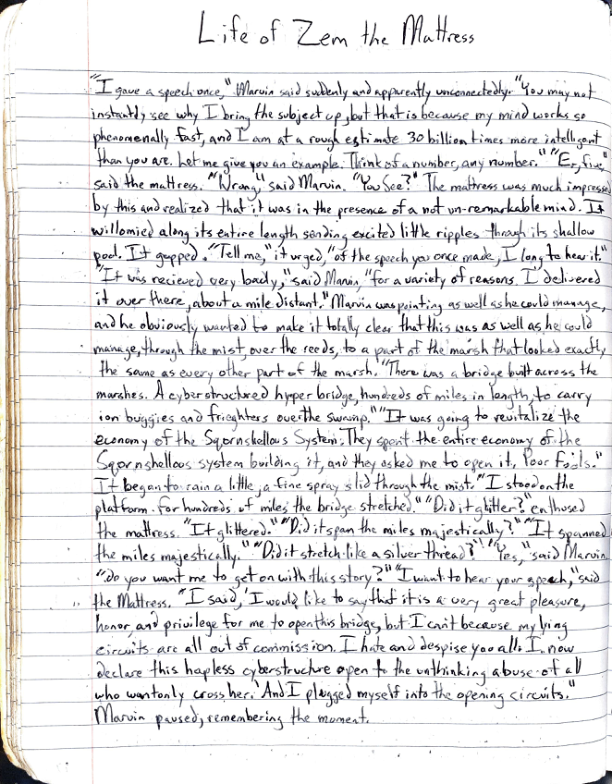 Life of Zem the Mattress
"I gave a speech once," Marvin said suddenly and apparently unconnectedly. "You may not
instantly see why I bring the subject up, but that is because my mind works so
phenomenally fast, and I am at a rough estimate 30 billion times more intelligent
than you are. Let me give you an example. Think of a number, any number." "Er, five,"
said the mattress. "Wrong," said Marvin. "You See?" The mattress was much impressed
by this and realized that it was in the presence of a not un-remarkable mind. It
willomied along its entire length sending excited little ripples through its shallow
pool. It gupped. "Tell me," it urged, "of the speech you once made, I long to hear it."
"It was recieved very badly," said Marvin, "for a variety of reasons. I delivered
it over there, about a mile distant." Marvin was pointing as well as he could manage,
and he obviously wanted to make it totally clear that this was as well as he could
manage, through the mist, over the reeds, to a part of the marsh that looked exactly
the same as every other part of the marsh. "There was a bridge built across the
marshes. A cyberstructured hyper bridge, hundreds of miles in length, to carry
ion buggies and frieghters over the swamp." "It was going to revitalize the
economy of the Sqornshellous System. They spent the entire economy of the
Sqornshellous system building it, and they asked me to open it, Poor Fools."
It began to rain a little, a fine spray slid through the mist. "I stood on the
platform. for hundreds of miles the bridge stretched." "Did it glitter?" enthused
the mattress. "It glittered." "Did it span the miles majestically?" "It spanned
the miles majestically." "Did it stretch like a silver thread?" "Yes," said Marvin
"do you want me to get on with this story?" "I want to hear your speech," said
the Mattress. "I said, 'I would like to say that it is a very great pleasure,
honor, and privilege for me to open this bridge, but I can't because my lying
circuits are all out of commission. I hate and despise you all. I now
declare this hapless cyberstructure open to the unthinking abuse of all
who wantonly cross her.' And I plugged myself into the opening circuits."
Marvin paused, remembering the moment.